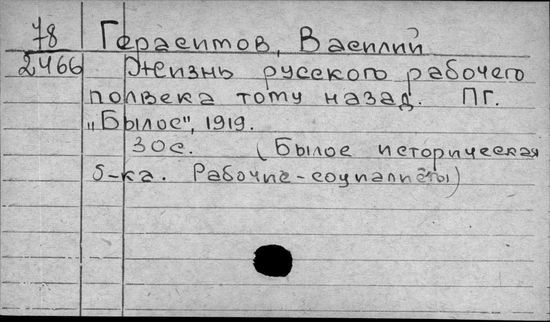 78 Герасимов, Василий
2466 Жизнь русского рабочего
полвека тому назад. Пг.
„Былое", 1919.
30с. (Былое историческая
б-ка. Рабочие-социалисты)